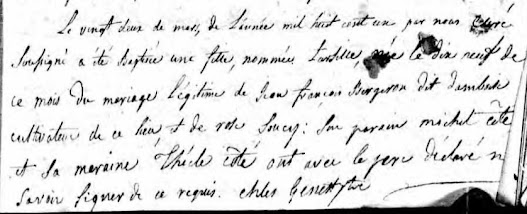 Le vingt deux de mars, de L'année mil huit cent un par nous Curé
soussigné a été Baptisé une fille, nommée, née le dix neuf de
ce mois du mariage Légitime de Jean françois Bergeron dit Damboise
cultivateur de ce lieu, et de rose Soucy: Son parain michel Côté
et Sa maraine Thécle Côté ont avec le pere declaré n
Savoir Signer de ce requis. Chles Genest ptre